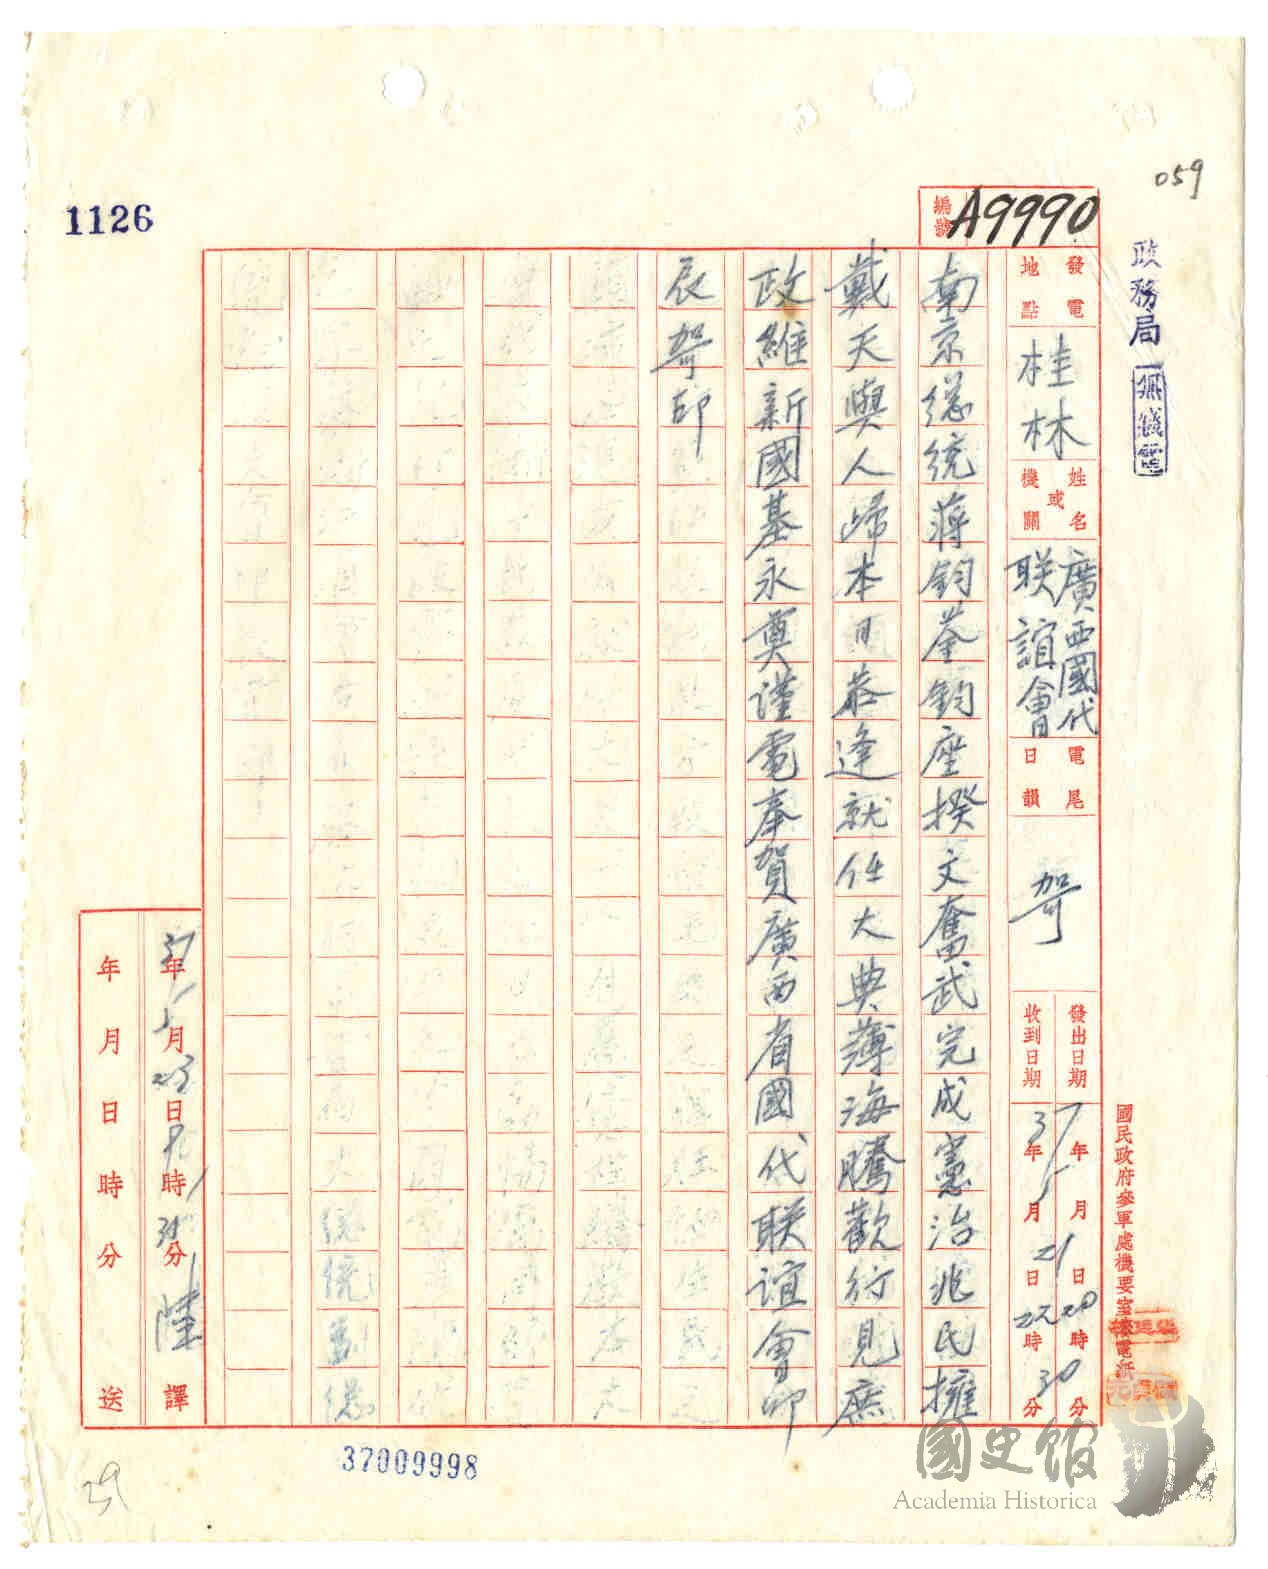 059
1126
政務局
無線電
編號
A9990
發電地點
桂林
姓名或機關
廣西國代
联誼會
電尾日韻
哿
發出日期
37年5月21日20時
收到日期
年月日22時30分
國民政府參軍處機要室來電紙
南京總統蔣鈞鑒鈞座揆文奮武完成憲治兆民擁
戴天與人歸本日恭逢就任大典薄海騰歡行見庶
政維新國基永奠謹電奉賀廣西省國代联誼會卯
辰哿印
37年5月23日9時35分陸譯
年月日時分送
37009998
39
國史館
Academia Historica